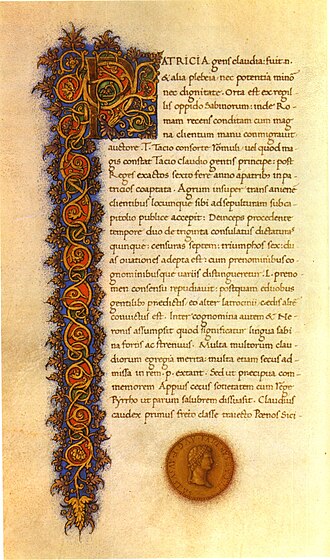 PATRICIA gens claudia: fuit .n.
& alia plebeia: nec potentia minor
nec dignitate. Orta est ex regil-
lis oppido sabinorum: inde Ro-
mam recens conditam cum mag
na clientum manu conmigravit
auctore .T. Tacio consorte Romuli: vel quod ma
gis constat Tacio claudio gentis principe: post
Reges exactos sexto fere anno a patribus in pa-
tricios cooptata. Agrum insuper trans anienem
clientibus locumque sibi ad sepulturam sub ca-
pitolio publice accepit: Deinceps procedente
tempore duo de triginta consulatus dictaturas
quinque: censuras septem: triumphos sex: du
as ovationes adepta est: cum prenominibus co-
gnominibusque variis distingueretur: .L. preno
men consensu repudiavit: postquam e duobus
gentilibus preditis eo alter latrocinii: cedis alter
convictus est. Inter cognomina autem & Ne
ronis assumpsit quod significatur lingua sabi
na fortis ac strenuus. Multa multorum clau-
diorum egregia merita: multa etiam secus ad-
missa in rem .p. extant. Sed ut precipua com
memorem Appius cecus societatem cum rege
Pyrrho ut parum salubrem dissuasit. Claudius
caudex primus freto classe traiecto Poenos Sici-